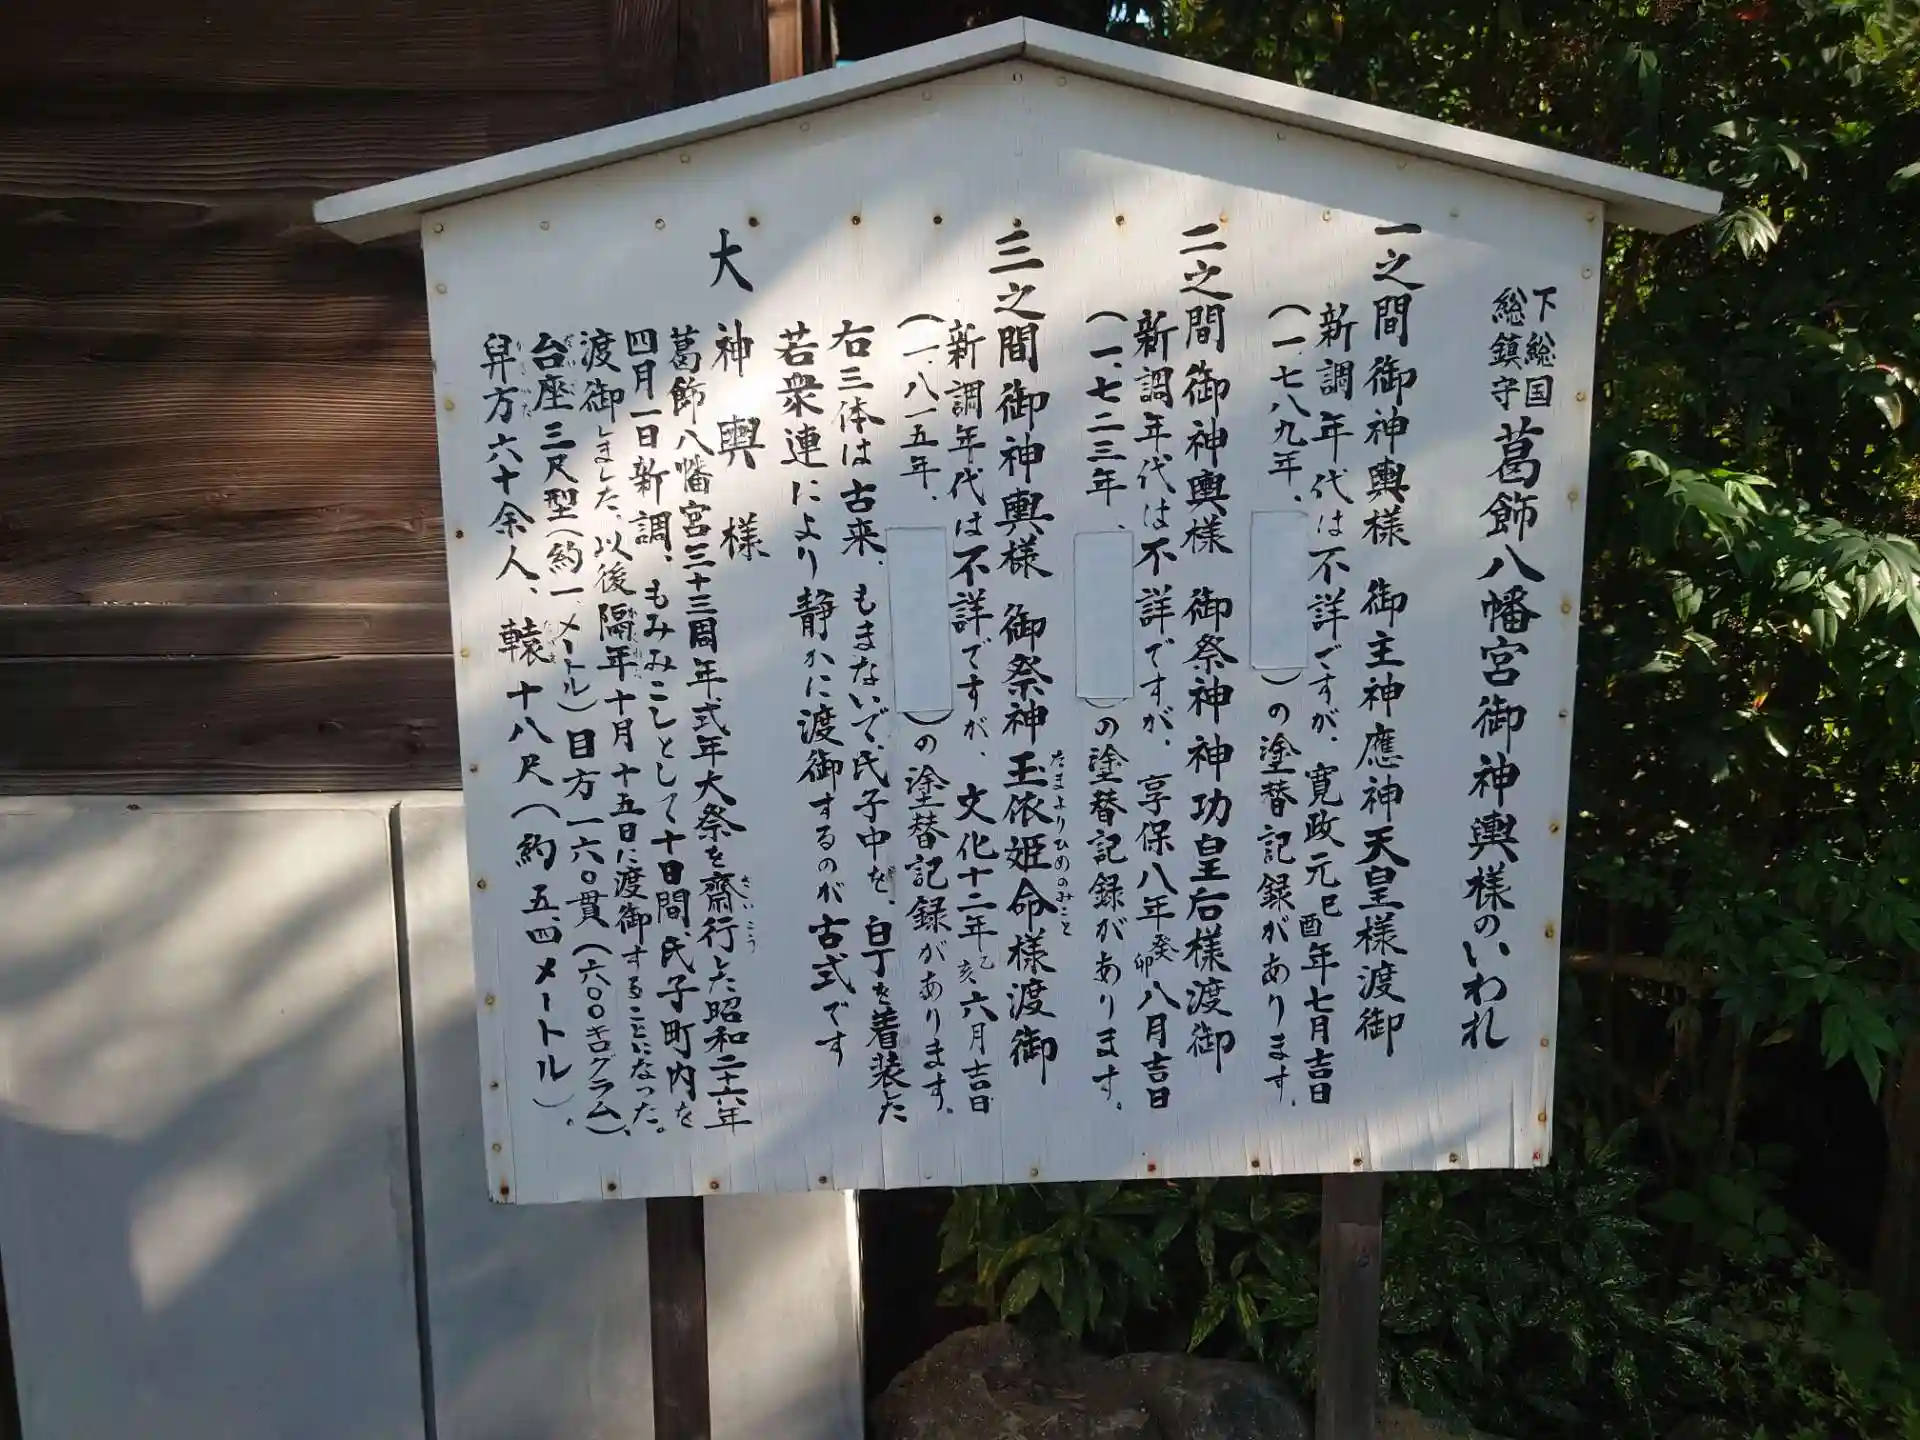 下総国
総鎮守
葛飾八幡宮御神輿様のいわれ
一之間御神輿様 御主神應神天皇様渡御
新調年代は不詳ですが、寛政元己酉年七月吉日
(一、七八九年、)の塗替記録があります。
二之間御神輿様 御祭神神功皇后様渡御
新調年代は不詳ですが、享保八年癸卯八月吉日
(一、七二三年、)の塗替記録があります。
三之間御神輿様 御祭神玉依姫命様渡御
たまよりひめのみこと
新調年代は不詳ですが、文化十二年乙亥六月吉日
(一、八一五年、)の塗替記録があります。
右三体は古来、もまないで、氏子中を、白丁を着装した
若衆連により静かに渡御するのが古式です
大神輿様
葛飾八幡宮三十三周年式年大祭を齋行した昭和二十六年
さいこう
四月一日新調、もみみこしとして十日間、氏子町内を
渡御しました、以後隔年十月十五日に渡御することになった。
台座三尺型(約一、メートル)目方一六〇貫(六〇〇キログラム)、
舁方六十余人、轅十八尺(約五、四メートル)。